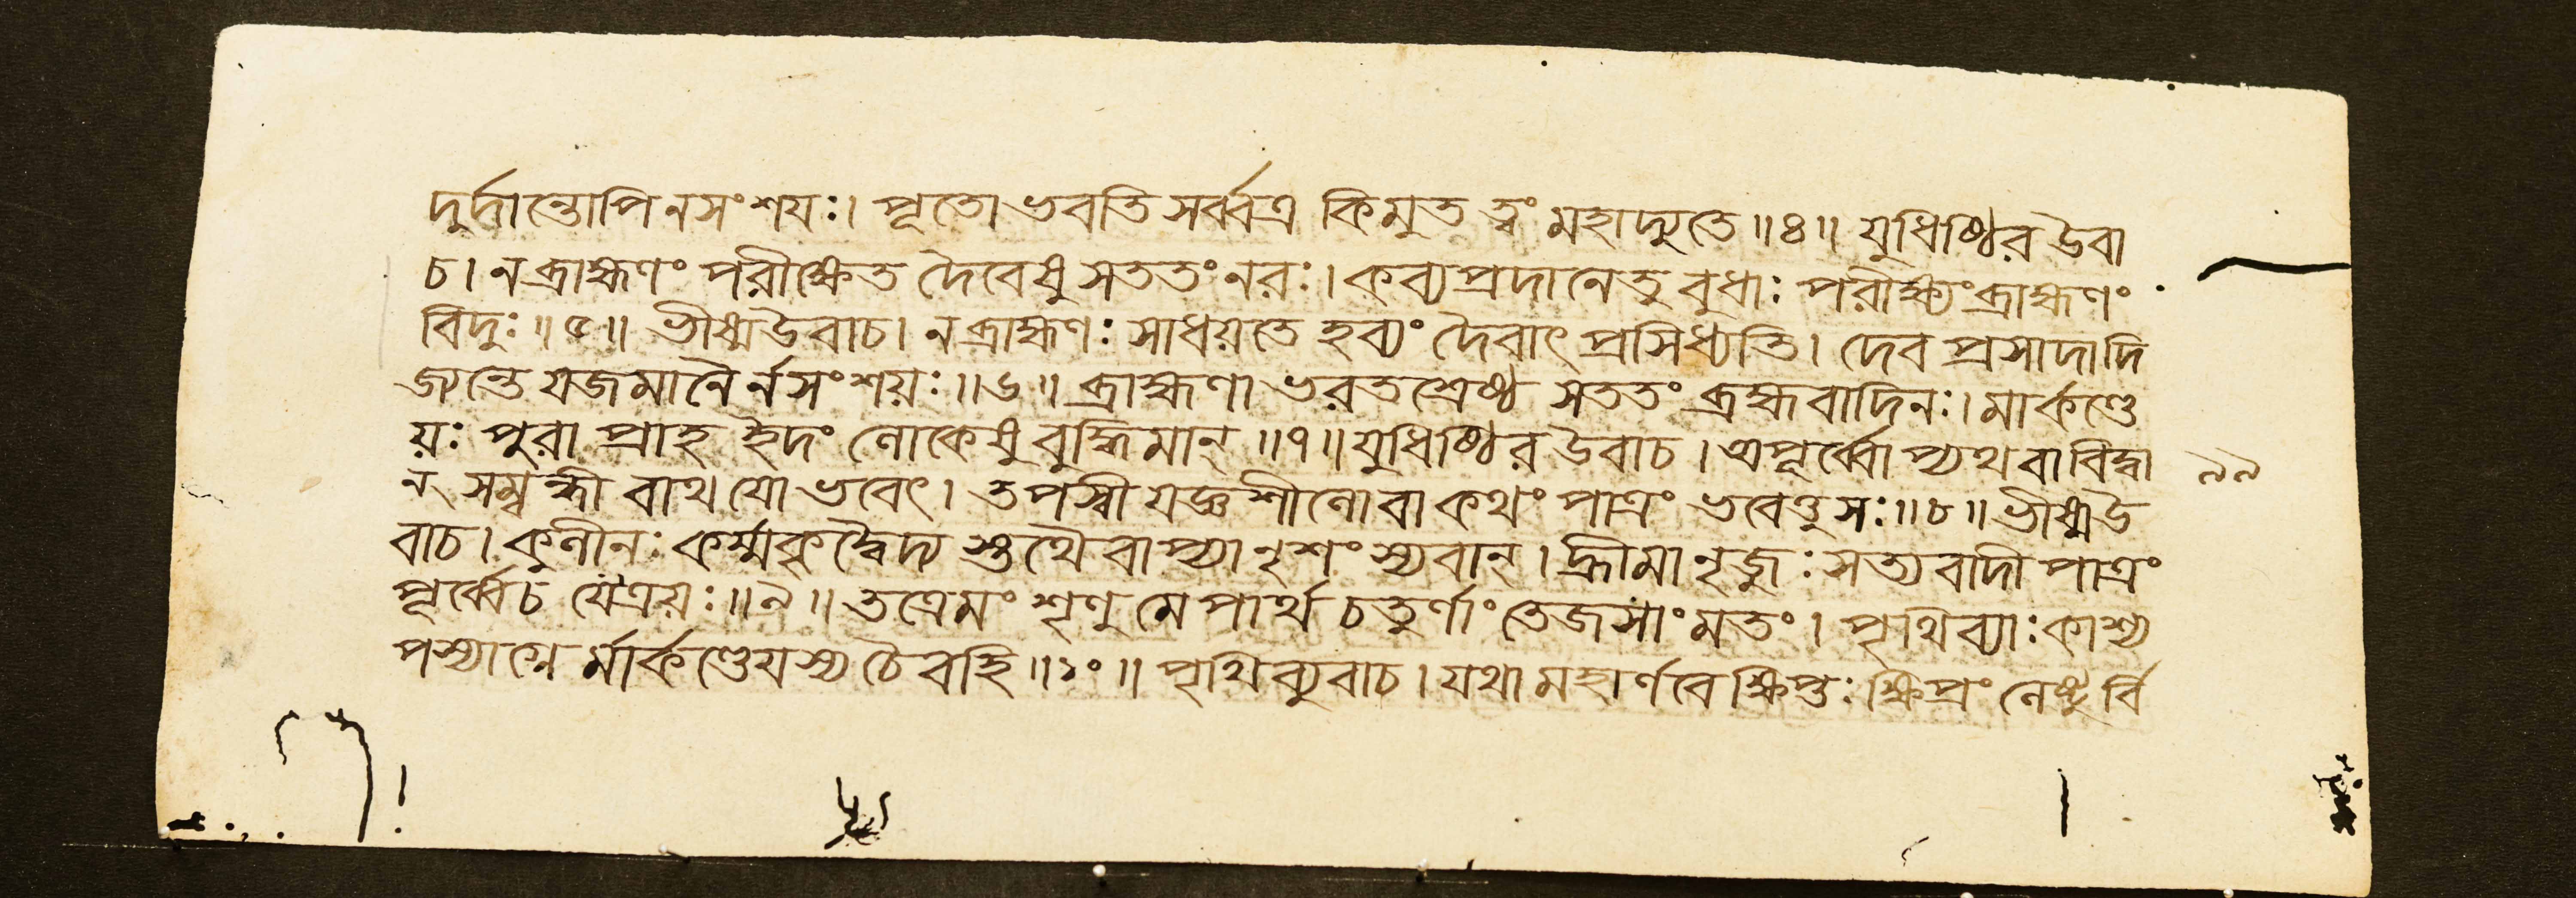 দুর্দ্দান্তোপি ন সংশযঃ। পূতো ভবতি সর্ব্বত্র কিমুত ত্বং মহাদ্যুতে॥৪॥ যুধিষ্ঠির উবা
চ। ন ব্রাহ্মণং পরীক্ষেত দৈবেষু সততং নরঃ। কব্যপ্রদানে তু বুধাঃ পরীক্ষ্যং ব্রাহ্মণং
বিদুঃ॥৫॥ ভীষ্ম উবাচ। ন ব্রাহ্মণঃ সাধয়তে হব্যং দৈবাৎ প্রসিধ্যতি। দেবপ্রসাদাদি
জ্যন্তে যজমানৈর্ন সংশয়ঃ॥৬॥ ব্রাহ্মণা ভরতশ্রেষ্ঠ সততং ব্রহ্মবাদিনঃ। মার্কণ্ডে
য়ঃ পুরা প্রাহ ইদং লোকেষু বুদ্ধিমান্॥৭॥ যুধিষ্ঠির উবাচ। অপূর্ব্বোপ্যথবা বিদ্বা
ন্ সম্বন্ধী বাথ যো ভবেৎ। তপস্বী যজ্ঞশীলো বা কথং পাত্রং ভবেত্তু সঃ॥৮॥ ভীষ্ম উ
বাচ। কুলীনঃ কর্ম্মকৃদ্বৈদ্য স্তথৈবাপ্যানৃশংস্যবান্। হ্রীমানৃজুঃ সত্যবাদী পাত্রং
পূর্ব্বে চ যে ত্রয়ঃ॥৯॥ তত্রেমং শৃণু মে পার্থ চতুর্ণাং তেজসাং মতং। পৃথিব্যাঃ কাশ্য
পস্যাগ্নে র্মার্কণ্ডেযস্য চৈবহি॥১০॥ পৃথিব্যুবাচ। যথা মহার্ণবে ক্ষিপ্তঃ ক্ষিপ্রং লেষ্টুর্বি
৯৯